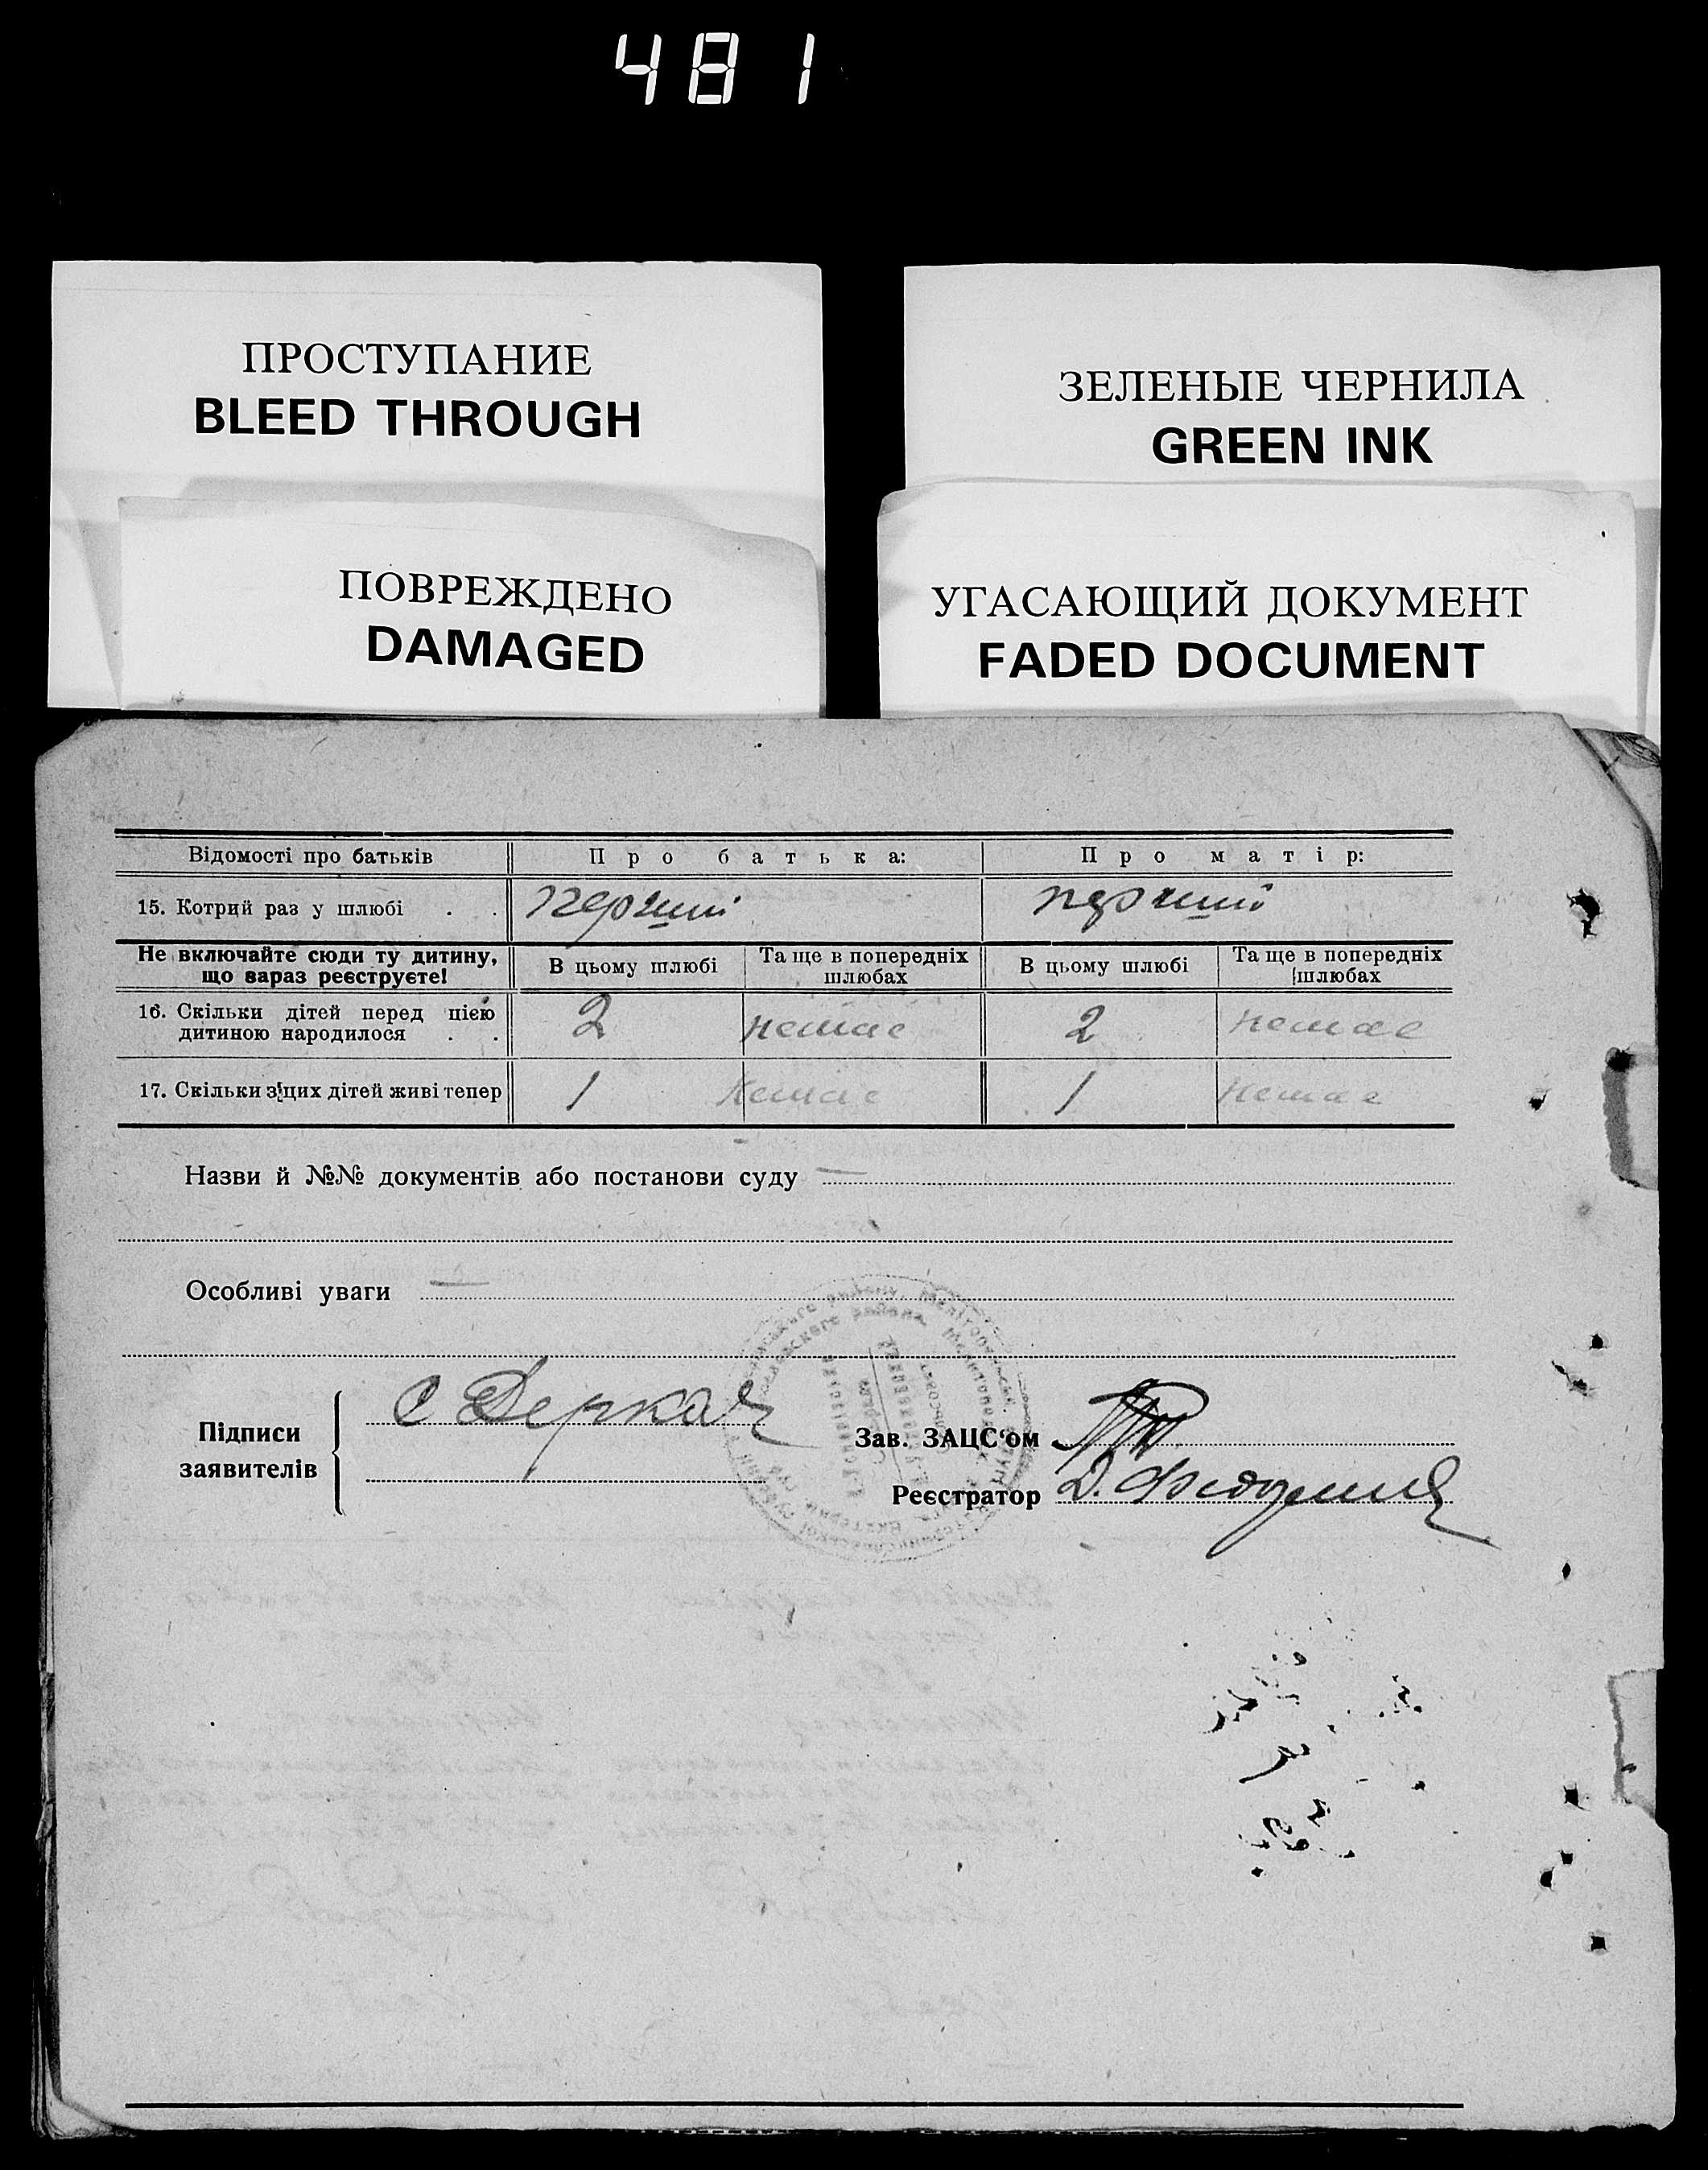 481
ПРОСТУПАНИЕ
BLEED THROUGH
ЗЕЛЕНЫЕ ЧЕРНИЛА
GREEN INK
ПОВРЕЖДЕНО
DAMAGED
УГАСАЮЩИЙ ДОКУМЕНТ
FADED DOCUMENT
Відомості про батьків Про батька: Про матір:
15. Котрий раз у шлюбі . . перший перший
Не включайте сюди ту дитину, що зараз реєструєте! В цьому шлюбі Та ще в попередніх шлюбах В цьому шлюбі Та ще в попередніх шлюбах
16. Скільки дітей перед цією дитиною народилося . . 2 немає 2 немає
17. Скільки з цих дітей живі тепер 1 немає 1 немає
Назви й №№ документів або постанови суду —
Особливі уваги —
Підписи заявителів
С Деркач
Зав. ЗАЦС'ом
Реєстратор Д.